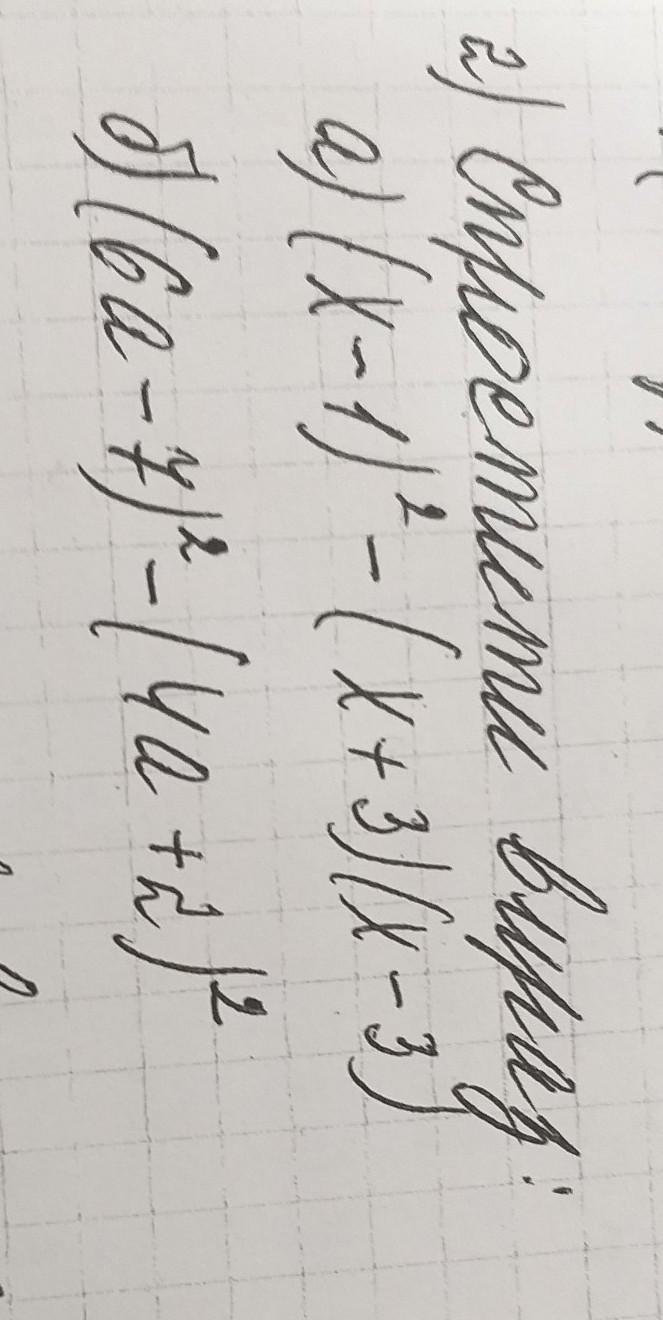 2) Спростити вираз:
а) (x - 1)² - (x + 3)(x - 3)
б) (6a - 7)² - (4a + 2)²